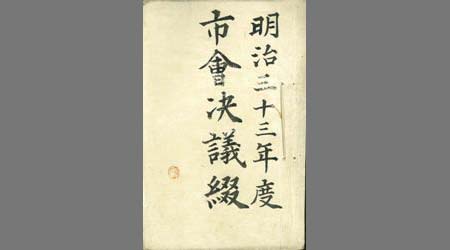 明治三十三年度
市會决議綴